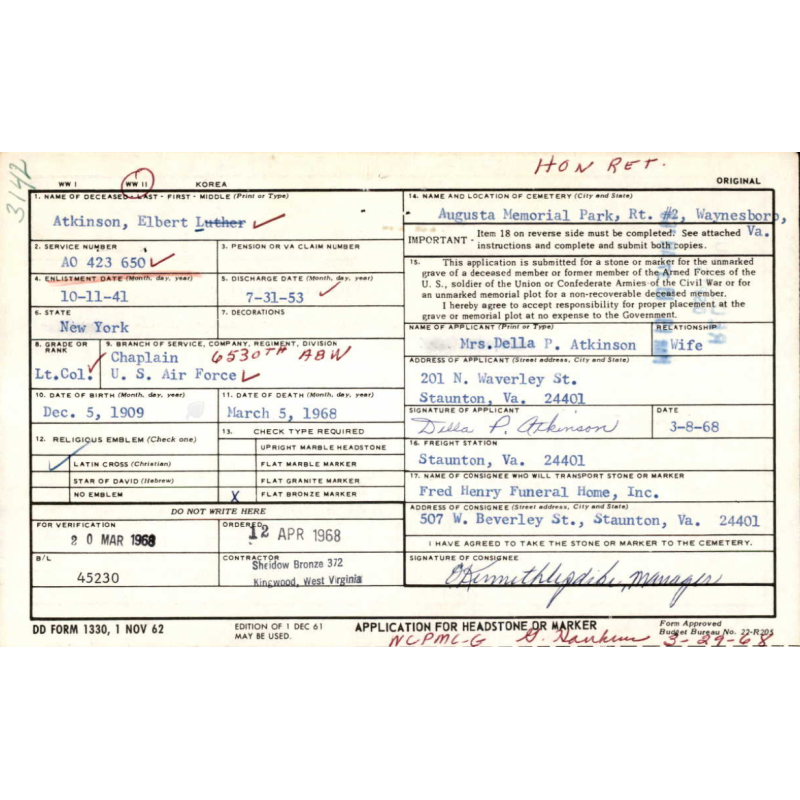 HON RET.
3142
WW I WW II KOREA ORIGINAL
1. NAME OF DECEASED - LAST - FIRST - MIDDLE (Print or Type)
Atkinson, Elbert Luther
2. SERVICE NUMBER
AO 423 650
3. PENSION OR VA CLAIM NUMBER
4. ENLISTMENT DATE (Month, day, year)
10-11-41
5. DISCHARGE DATE (Month, day, year)
7-31-53
6. STATE
New York
7. DECORATIONS
8. GRADE OR RANK
Lt.Col.
9. BRANCH OF SERVICE, COMPANY, REGIMENT, DIVISION
Chaplain 6530TH ABW
U. S. Air Force
10. DATE OF BIRTH (Month, day, year)
Dec. 5, 1909
11. DATE OF DEATH (Month, day, year)
March 5, 1968
12. RELIGIOUS EMBLEM (Check one)
LATIN CROSS (Christian)
STAR OF DAVID (Hebrew)
NO EMBLEM
13. CHECK TYPE REQUIRED
UPRIGHT MARBLE HEADSTONE
FLAT MARBLE MARKER
FLAT GRANITE MARKER
X FLAT BRONZE MARKER
DO NOT WRITE HERE
FOR VERIFICATION
20 MAR 1968
ORDERED
12 APR 1968
B/L
45230
CONTRACTOR
Sheidow Bronze 372
Kingwood, West Virginia
14. NAME AND LOCATION OF CEMETERY (City and State)
Augusta Memorial Park, Rt. #2, Waynesboro,
Va.
IMPORTANT - Item 18 on reverse side must be completed. See attached
instructions and complete and submit both copies.
15. This application is submitted for a stone or marker for the unmarked
grave of a deceased member or former member of the Armed Forces of the
U. S., soldier of the Union or Confederate Armies of the Civil War or for
an unmarked memorial plot for a non-recoverable deceased member.
I hereby agree to accept responsibility for proper placement at the
grave or memorial plot at no expense to the Government.
NAME OF APPLICANT (Print or Type)
Mrs.Della P. Atkinson
RELATIONSHIP
Wife
ADDRESS OF APPLICANT (Street address, City and State)
201 N. Waverley St.
Staunton, Va. 24401
SIGNATURE OF APPLICANT
Della P. Atkinson
DATE
3-8-68
16. FREIGHT STATION
Staunton, Va. 24401
17. NAME OF CONSIGNEE WHO WILL TRANSPORT STONE OR MARKER
Fred Henry Funeral Home, Inc.
ADDRESS OF CONSIGNEE (Street address, City and State)
507 W. Beverley St., Staunton, Va. 24401
I HAVE AGREED TO TAKE THE STONE OR MARKER TO THE CEMETERY.
SIGNATURE OF CONSIGNEE
manager
DD FORM 1330, 1 NOV 62
EDITION OF 1 DEC 61
MAY BE USED.
APPLICATION FOR HEADSTONE OR MARKER
Form Approved
Budget Bureau No. 22-R205
NCPMC-G 3-29-68